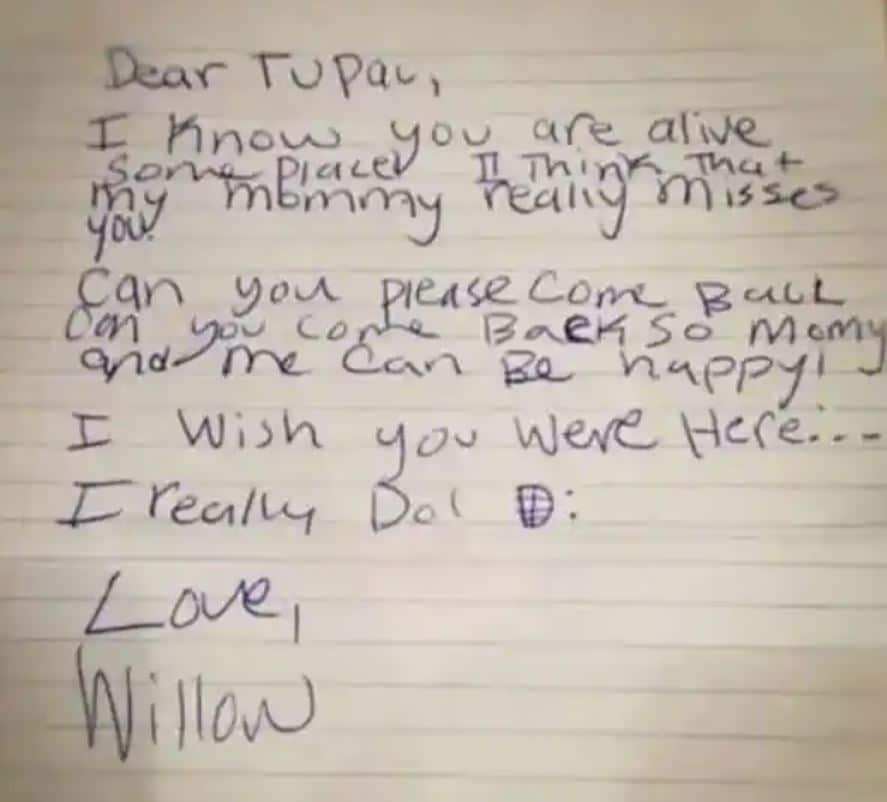 Dear Tupac,
I Know you are alive
some place. I Think That
my mommy really misses
you.
Can you please come Back
Can you come Back so Momy
and me can Be happy!
I Wish you Were Here...-
I really Do!  :
Love,
Willow